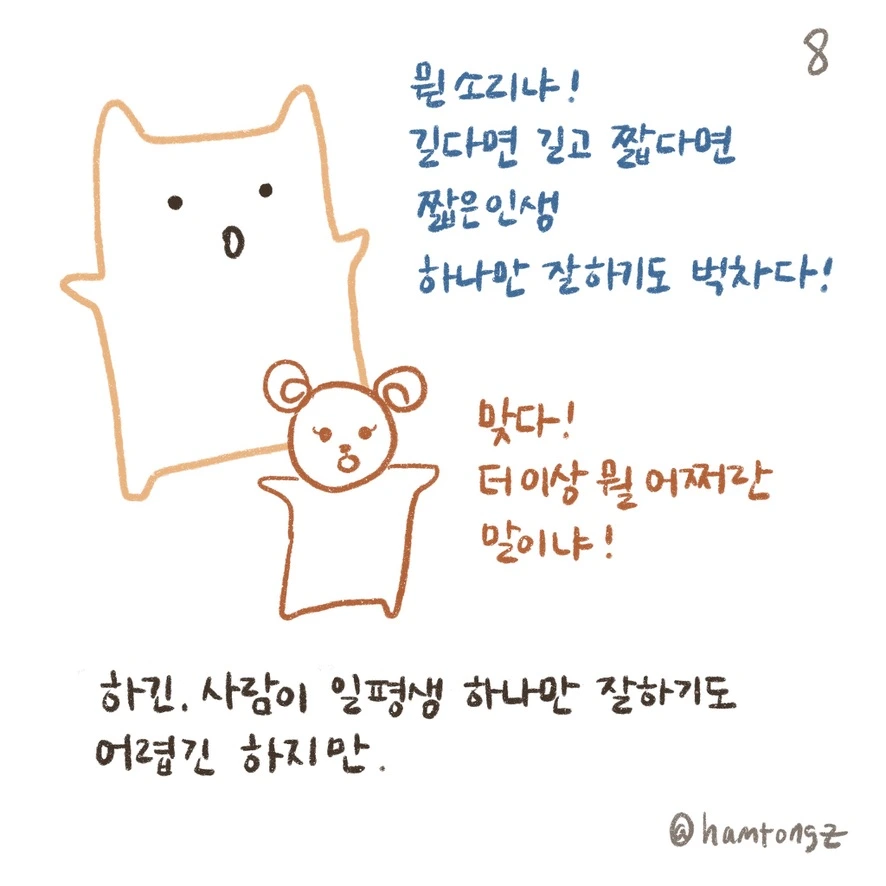 8
뭔 소리냐!
길다면 길고 짧다면
짧은 인생
하나만 잘하기도 벅차다!
맞다!
더 이상 뭘 어쩌란
말이냐!
하긴. 사람이 일평생 하나만 잘하기도
어렵긴 하지만.
@hamtongz